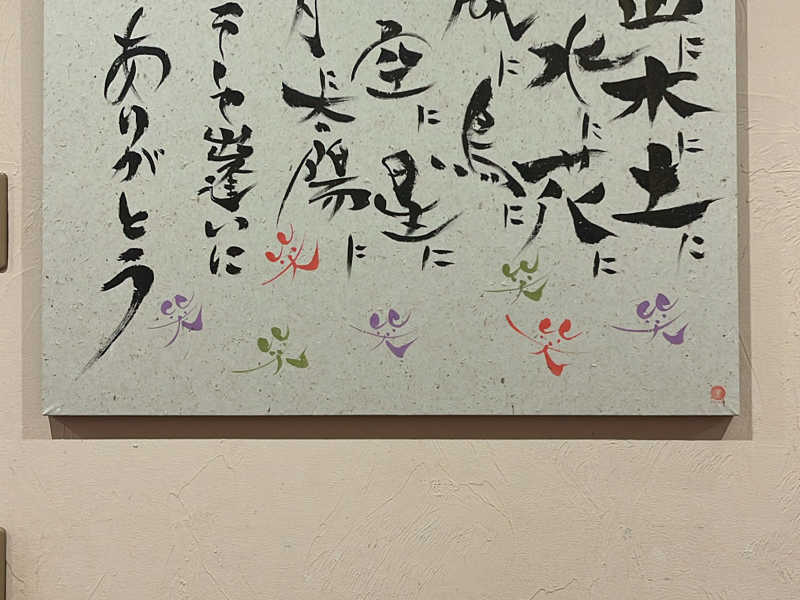 に木に土に
水に花に
風に鳥に
空に星に
月に太陽に
出逢いに
ありがとう
笑
笑
笑
笑
笑
笑
笑